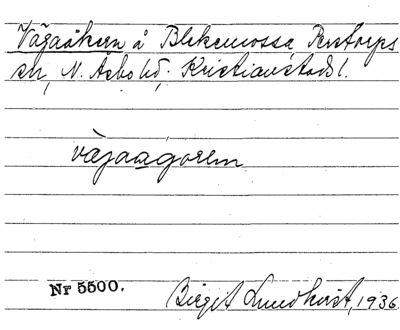 Vägaåkern å Blekemossa Perstorps
sn, N. Åsbo hd; Kristianstads l.
väjaagoren
Nr 5500.
Birgit Lundkvist, 1936.